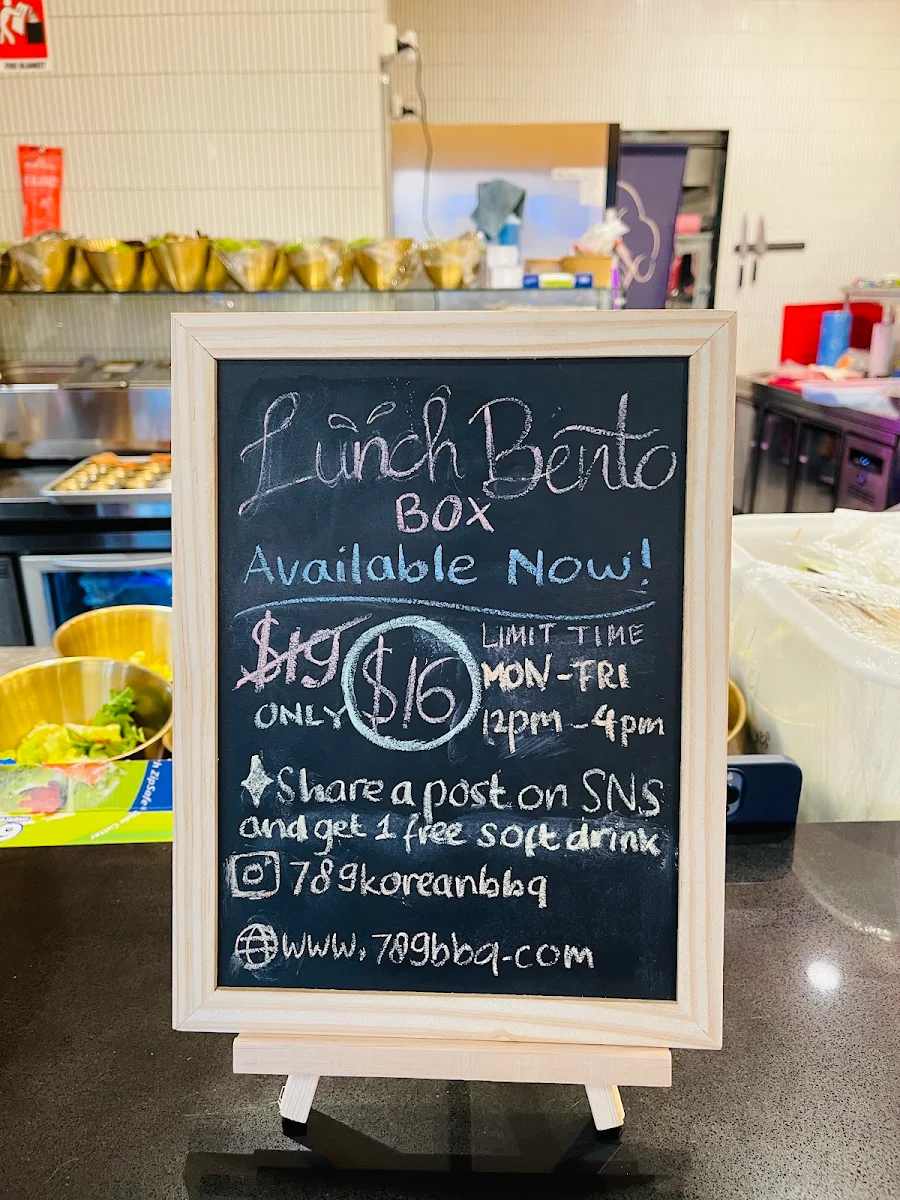 Lunch Bento
BOX
Available Now!
$19
ONLY
$16
LIMIT TIME
MON-FRI
12pm-4pm
Share a post on SNS
and get 1 free soft drink
789koreanbbq
www.789bbq.com
FIRE BLANKET